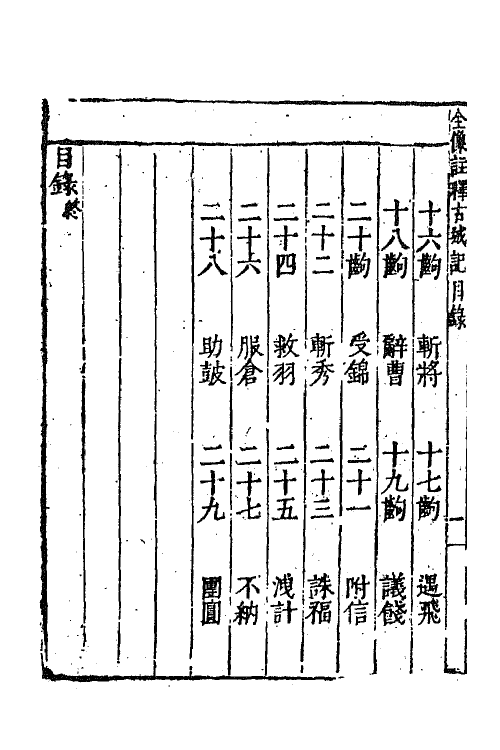 全像註釋古城記目錄 一
十六齣 斬將 十七齣 遇飛
十八齣 辭曹 十九齣 議餞
二十齣 受錦 二十一 附信
二十二 斬秀 二十三 誅福
二十四 救羽 二十五 洩計
二十六 服倉 二十七 不納
二十八 助鼓 二十九 團圓
目錄終